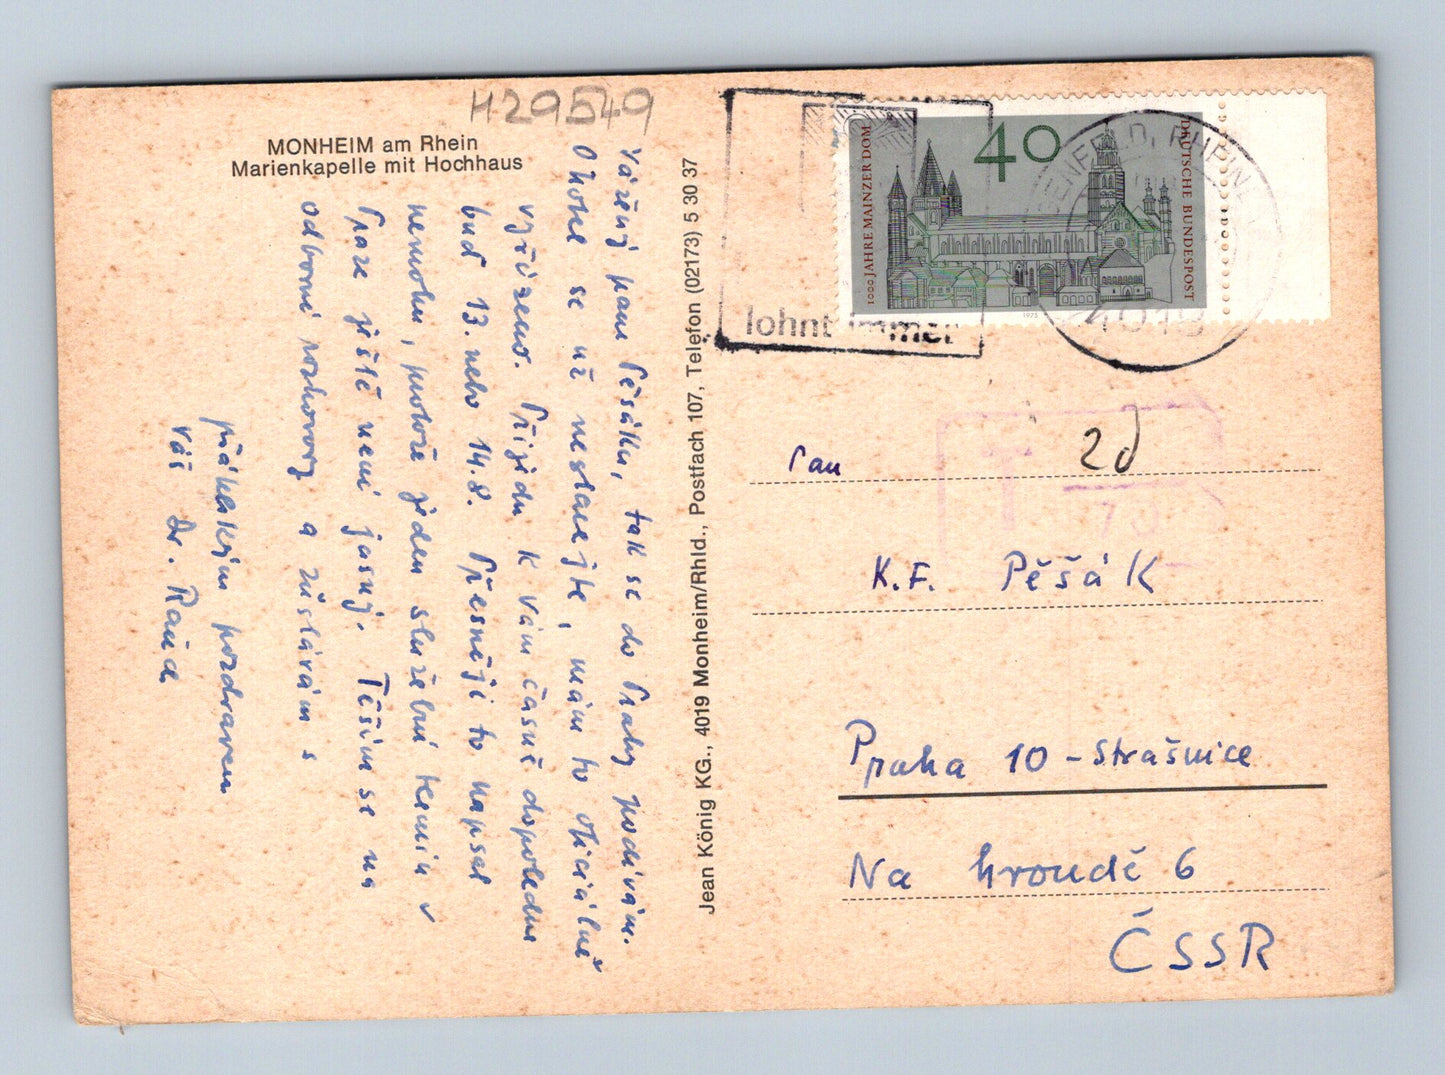 H29549
MONHEIM am Rhein
Marienkapelle mit Hochhaus
Vážený pane Pěšáku, tak se do Prahy podívám.
Ohohe se už neslacejte, mám to oficiálně
vyřízeno. Přijedu k vám časně dopoledne
buď 13. nebo 14.8. Přesněji to napsat
nemohu, protože jeden služební termín v
Praze ještě není jasný. Těším se na
odborné rozhovory a zůstávám s
přátelským pozdravem
Váš Dr.
Jean König KG., 4019 Monheim/Rhld., Postfach 107, Telefon (02173) 5 30 37
lohnt immer
40
1000 JAHRE MAINZER DOM
DEUTSCHE BUNDESPOST
1975
4019
T
70
2d
Pan
K.F. Pěšák
Praha 10 - Strašnice
Na hroudě 6
ČSSR